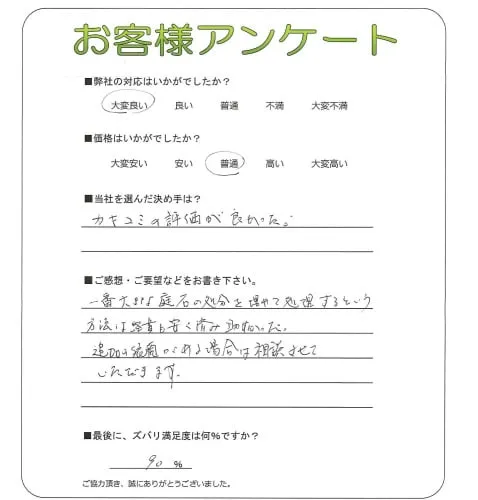 お客様アンケート
■弊社の対応はいかがでしたか?
大変良い 良い 普通 不満 大変不満
■価格はいかがでしたか?
大変安い 安い 普通 高い 大変高い
■当社を選んだ決め手は?
カキコミの評価が良かった。
■ご感想・ご要望などをお書き下さい。
一番大きな庭石の処分を埋めて処理するという
方法は経費も安く済み助かった。
追加の依頼がある場合は相談させて
いただきます。
■最後に、ズバリ満足度は何%ですか?
90 %
ご協力頂き、誠にありがとうございました。